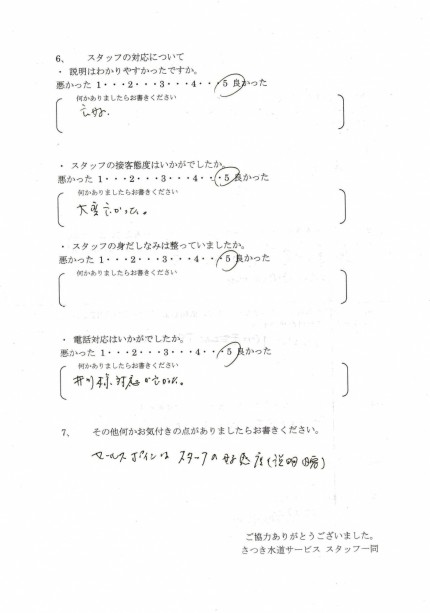 6、 スタッフの対応について
・ 説明はわかりやすかったですか。
悪かった 1・・・2・・・3・・・4・・・5 良かった
何かありましたらお書きください
・ スタッフの接客態度はいかがでしたか。
悪かった 1・・・2・・・3・・・4・・・5 良かった
何かありましたらお書きください
大変良かった。
・ スタッフの身だしなみは整っていましたか。
悪かった 1・・・2・・・3・・・4・・・5 良かった
何かありましたらお書きください
・ 電話対応はいかがでしたか。
悪かった 1・・・2・・・3・・・4・・・5 良かった
何かありましたらお書きください
対応が良かった。
7、 その他何かお気付きの点がありましたらお書きください。
セールスポイントは スタッフの好感度(説明
ご協力ありがとうございました。
さつき水道サービス スタッフ一同